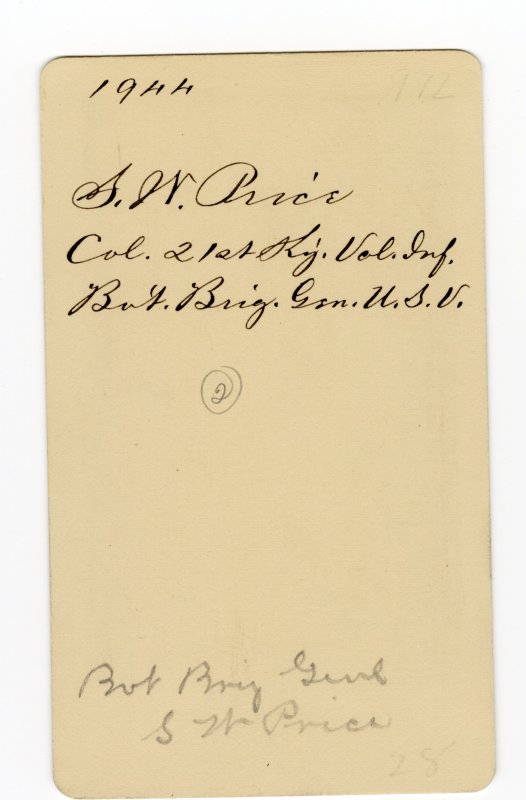 1944
S. W. Price
Col. 21st Ky. Vol. Inf.
Bv't. Brig. Gen. U. S. V.
2
Bvt Brig Genl
S W Price
28